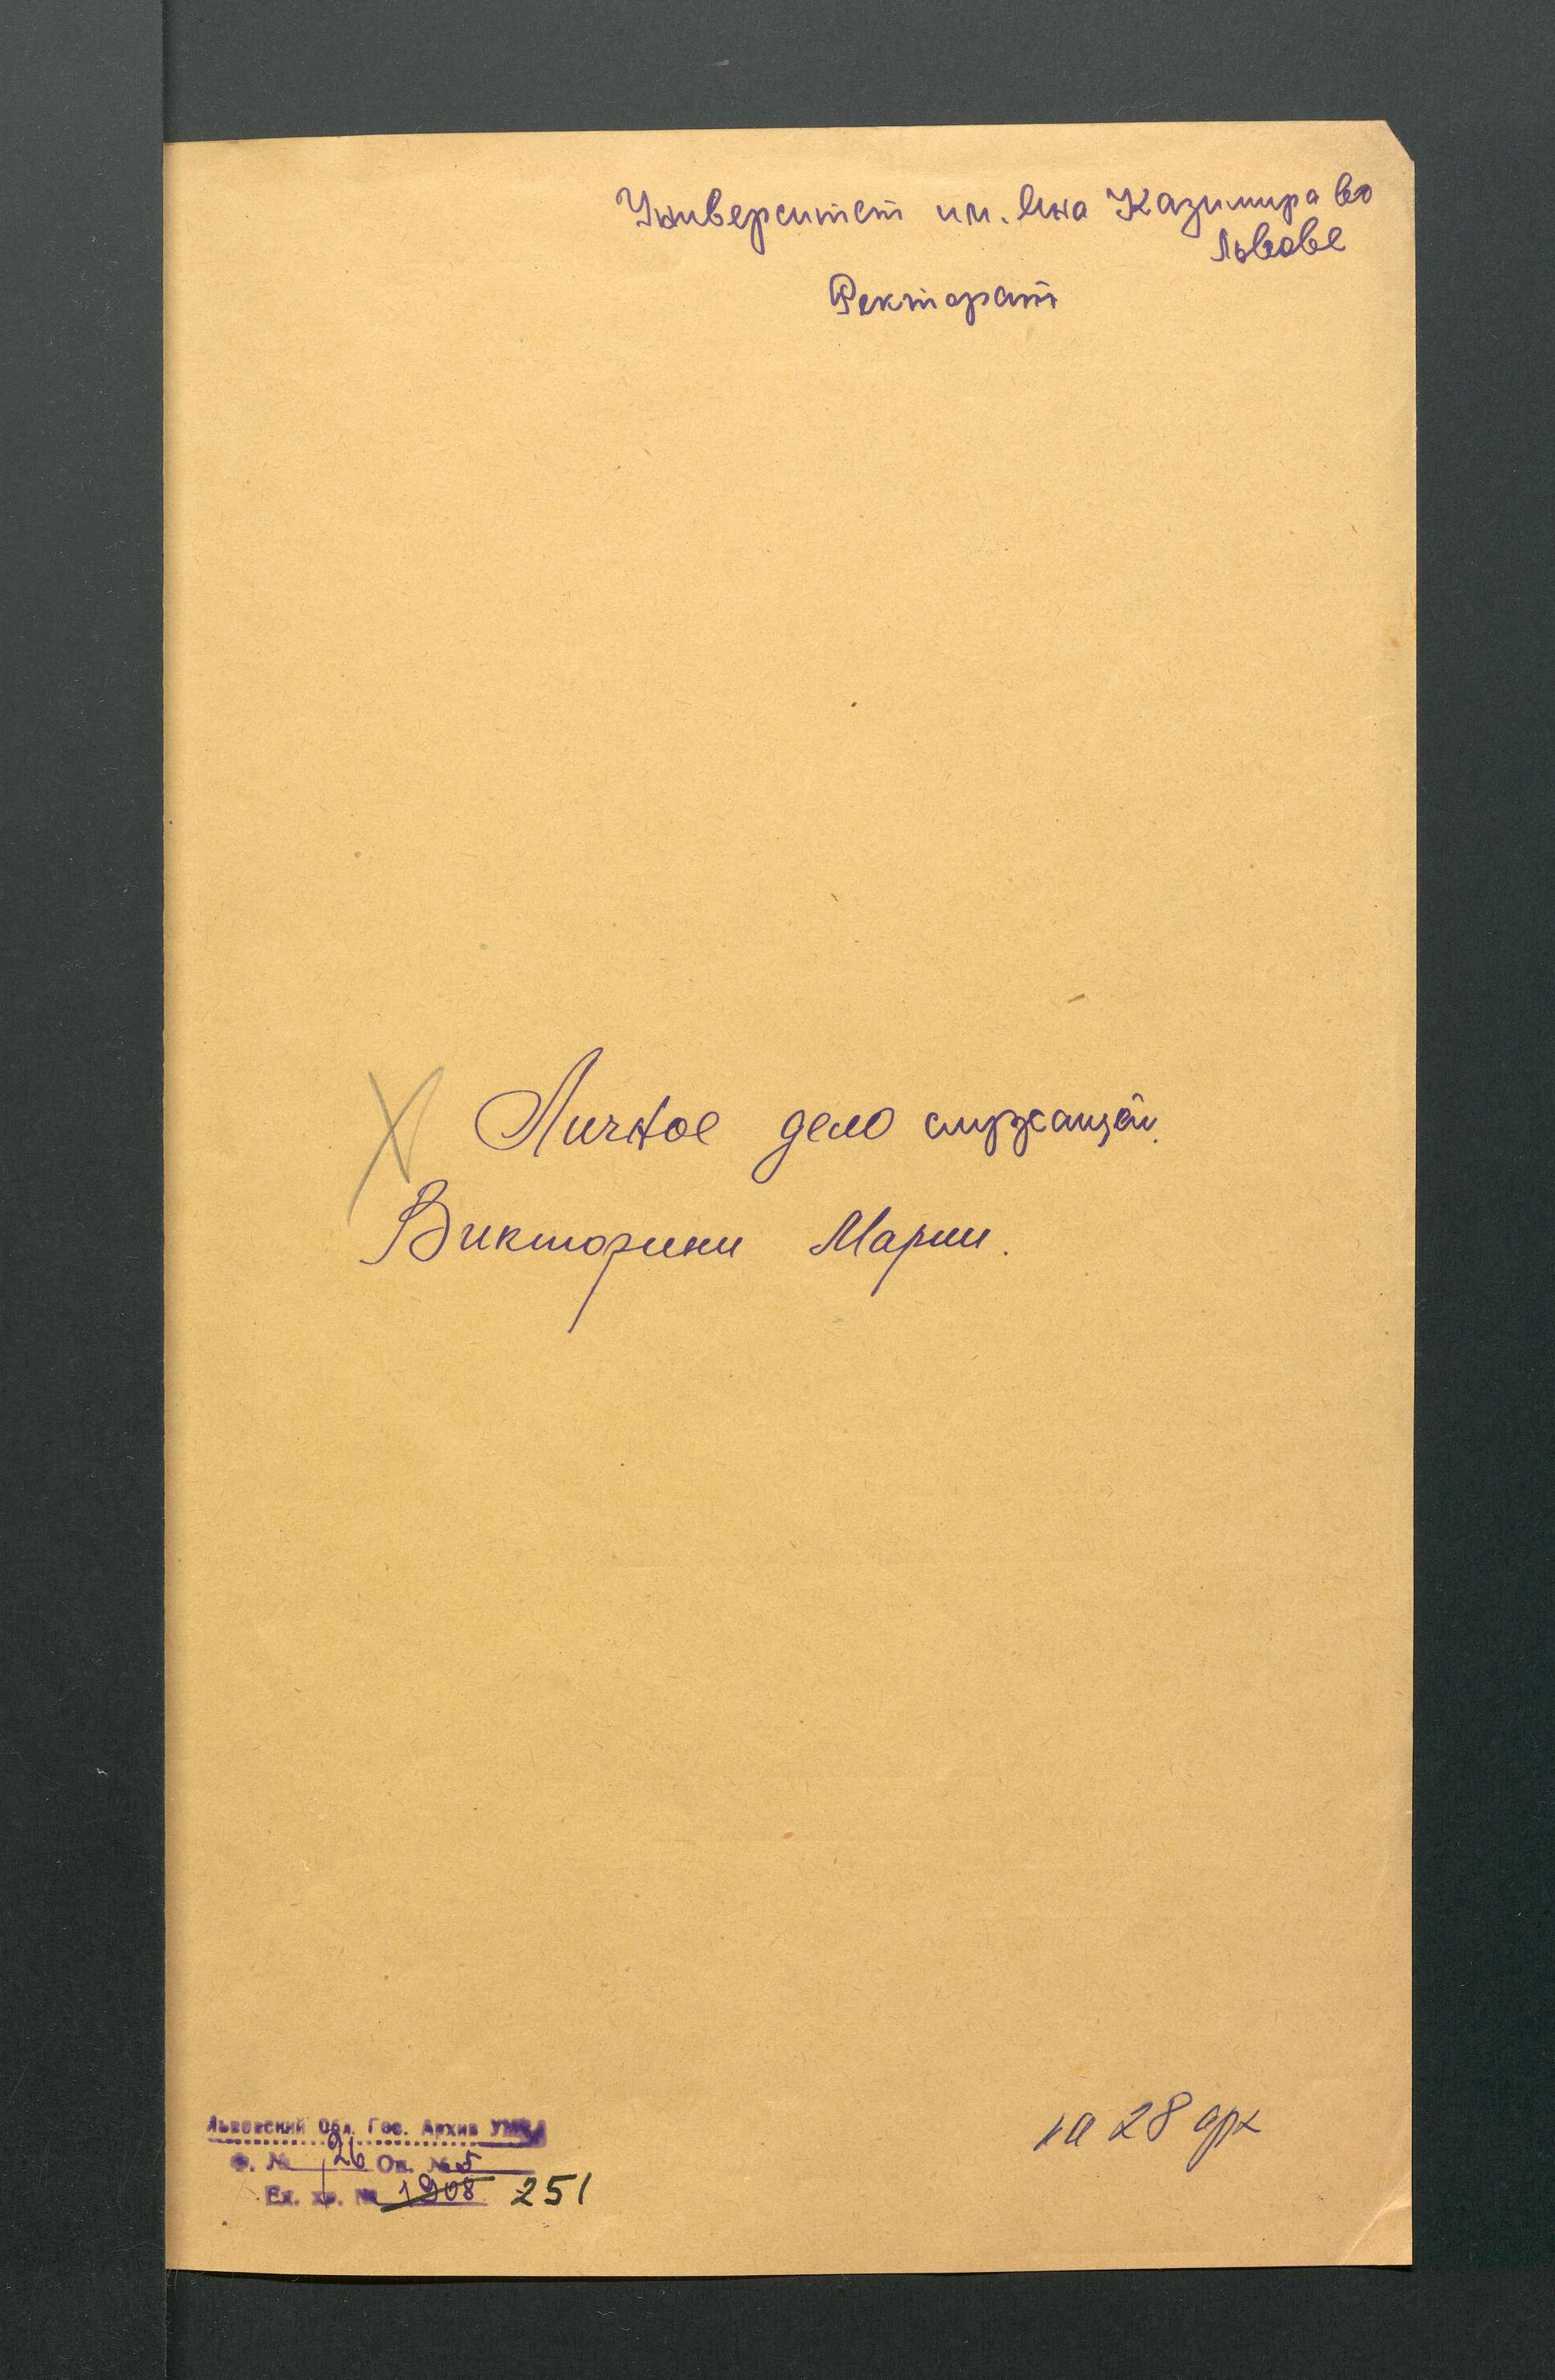 Университет им. Яна Казимира во
Львове
Ректорат
Личное дело служащей.
Викторини Марии.
на 28 арк
Львовский Обл. Гос. Архив УМВД
Ф. № 26 Оп. № 5
Ед. хр. № 1908 251